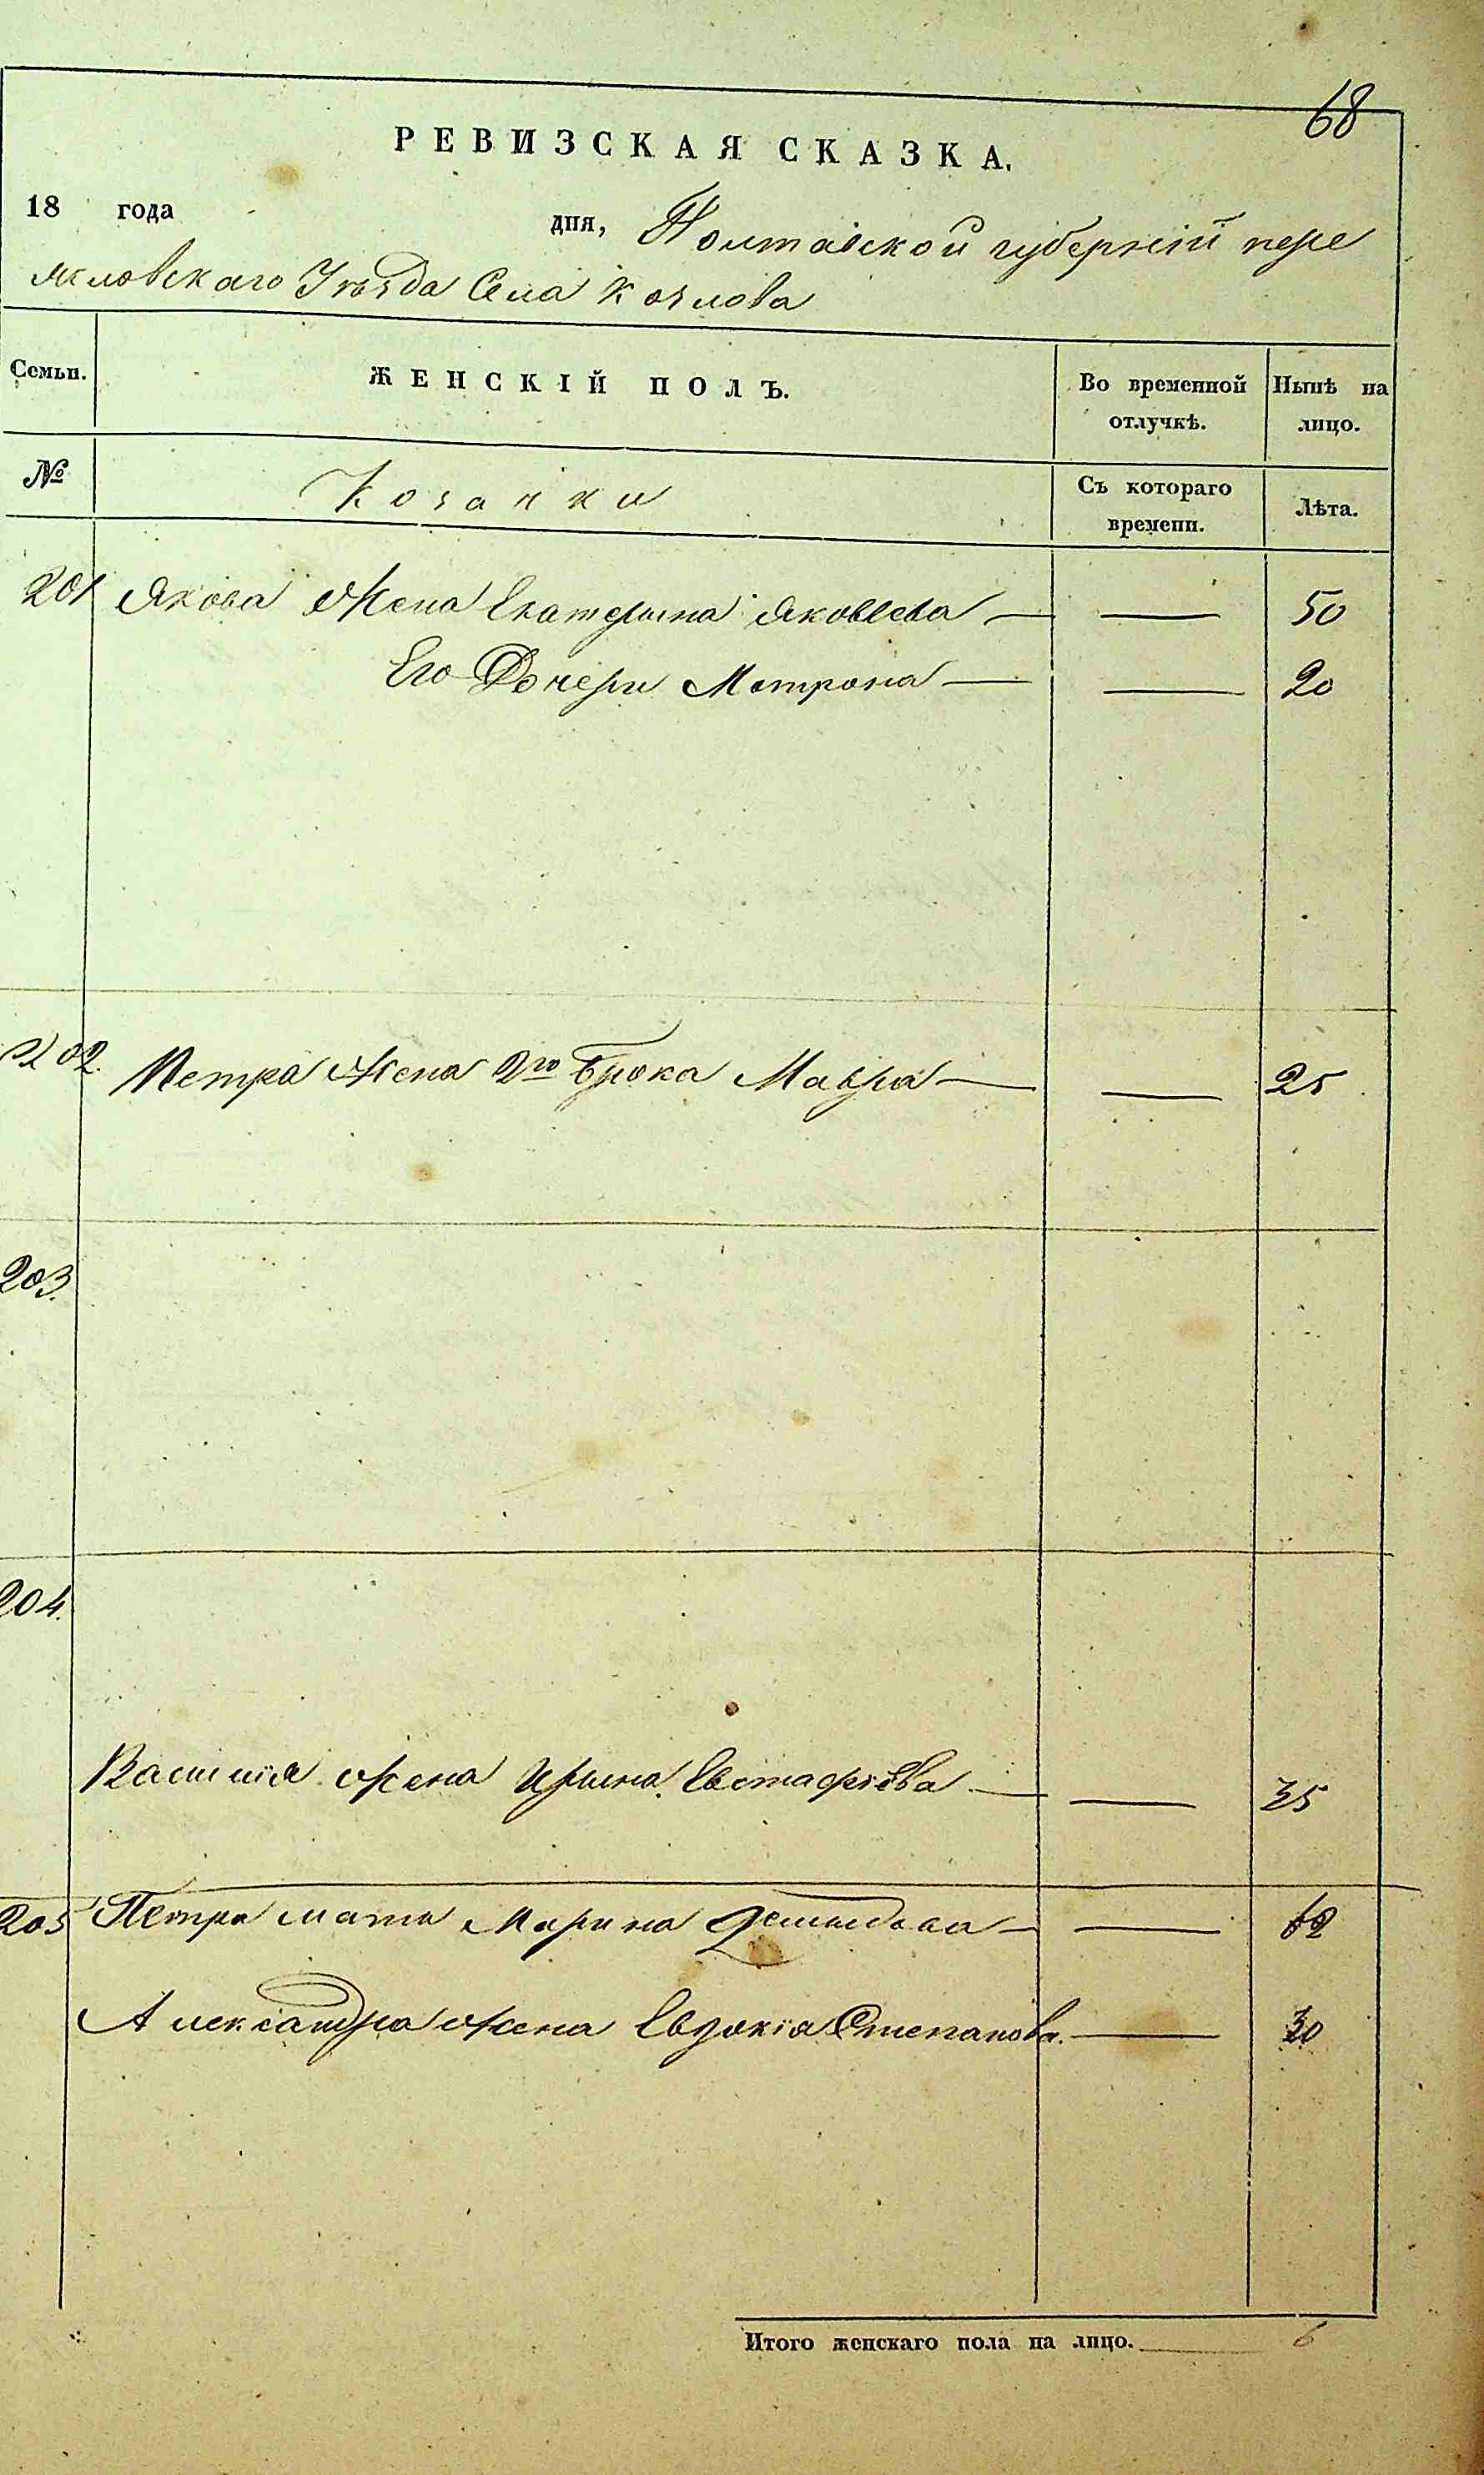 68
РЕВИЗСКАЯ СКАЗКА.
18 года дня, Полтавской губерніи пере
яловскаго Уѣзда Села Козлова
Семьи. ЖЕНСКІЙ ПОЛЪ. Во временной отлучкѣ. Нынѣ на лицо.
№ Козачки Съ котораго времени. Лѣта.
201 Якова жена Екатерина Яковлева — — 50
Его Дочери Мотрона — — 20
202. Петра жена 2го брока Мавра — — 25
203.
204.
Василия жена Ирина Евстафіева — — 35
205 Петра мати Марина — — 62
Александра жена Евдокія Степанова. — 30
Итого женскаго пола на лицо. 6